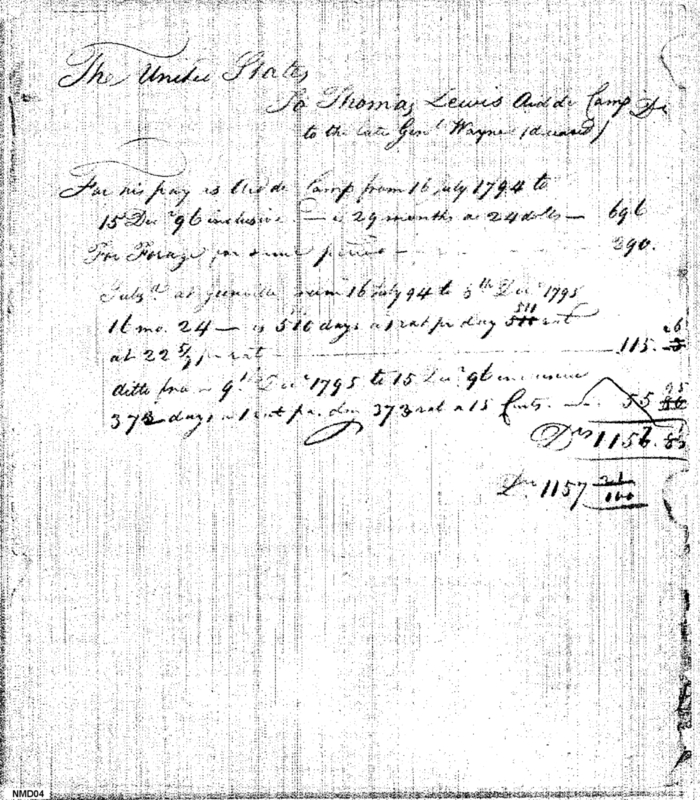 The United States
To Thomas Lewis Aid de Camp Dr
to the late Genl Wayne (deceased)
For his pay as Aid de Camp from 16 July 1794 to
15 Decr 96 inclusive is 29 months at 24 dolls — 696
For Forage for same period — 290.
Subs. at Greenville from 16 July 94 to 8th Decr 1795
16 mo. 24 — is 511 days a 1 rat pr day 511 rat
at 22 5/ p rat 115.
ditto from 9th Decr 1795 to 15 Decr 96 inclusive
373 days a 1 rat pr. day 373 rat a 15 Cents. — 55 95
Drs 1156.
Drs. 1157 /100
NMD04